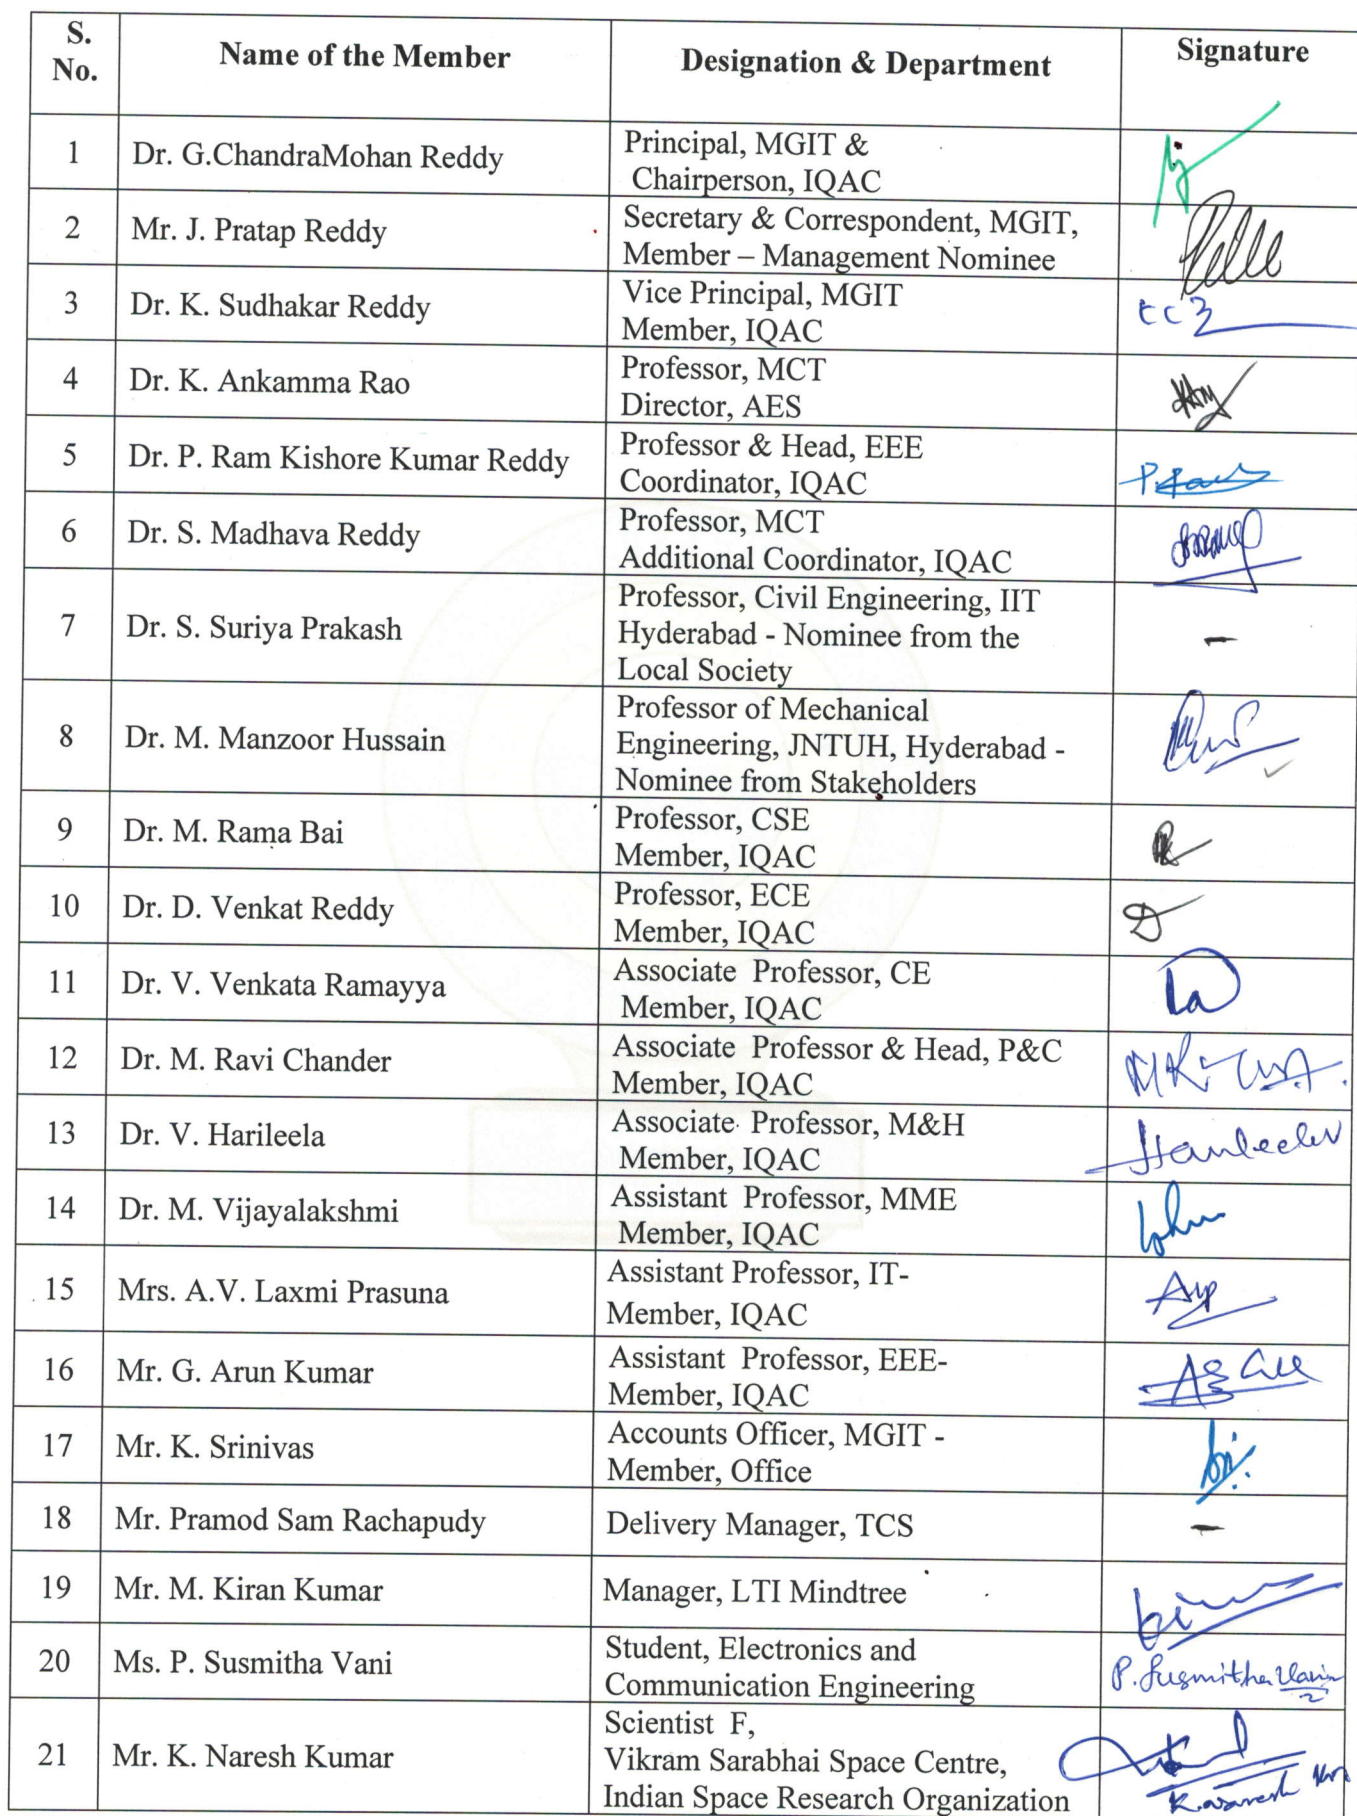 S.
No.
Name of the Member
Designation & Department
Signature
1
Dr. G.ChandraMohan Reddy
Principal, MGIT &
Chairperson, IQAC
2
Mr. J. Pratap Reddy
Secretary & Correspondent, MGIT,
Member – Management Nominee
3
Dr. K. Sudhakar Reddy
Vice Principal, MGIT
Member, IQAC
4
Dr. K. Ankamma Rao
Professor, MCT
Director, AES
5
Dr. P. Ram Kishore Kumar Reddy
Professor & Head, EEE
Coordinator, IQAC
6
Dr. S. Madhava Reddy
Professor, MCT
Additional Coordinator, IQAC
7
Dr. S. Suriya Prakash
Professor, Civil Engineering, IIT
Hyderabad - Nominee from the
Local Society
-
8
Dr. M. Manzoor Hussain
Professor of Mechanical
Engineering, JNTUH, Hyderabad -
Nominee from Stakeholders
9
Dr. M. Rama Bai
Professor, CSE
Member, IQAC
10
Dr. D. Venkat Reddy
Professor, ECE
Member, IQAC
11
Dr. V. Venkata Ramayya
Associate Professor, CE
Member, IQAC
12
Dr. M. Ravi Chander
Associate Professor & Head, P&C
Member, IQAC
13
Dr. V. Harileela
Associate Professor, M&H
Member, IQAC
14
Dr. M. Vijayalakshmi
Assistant Professor, MME
Member, IQAC
15
Mrs. A.V. Laxmi Prasuna
Assistant Professor, IT-
Member, IQAC
16
Mr. G. Arun Kumar
Assistant Professor, EEE-
Member, IQAC
17
Mr. K. Srinivas
Accounts Officer, MGIT -
Member, Office
18
Mr. Pramod Sam Rachapudy
Delivery Manager, TCS
-
19
Mr. M. Kiran Kumar
Manager, LTI Mindtree
20
Ms. P. Susmitha Vani
Student, Electronics and
Communication Engineering
P. Susmitha Vani
21
Mr. K. Naresh Kumar
Scientist F,
Vikram Sarabhai Space Centre,
Indian Space Research Organization